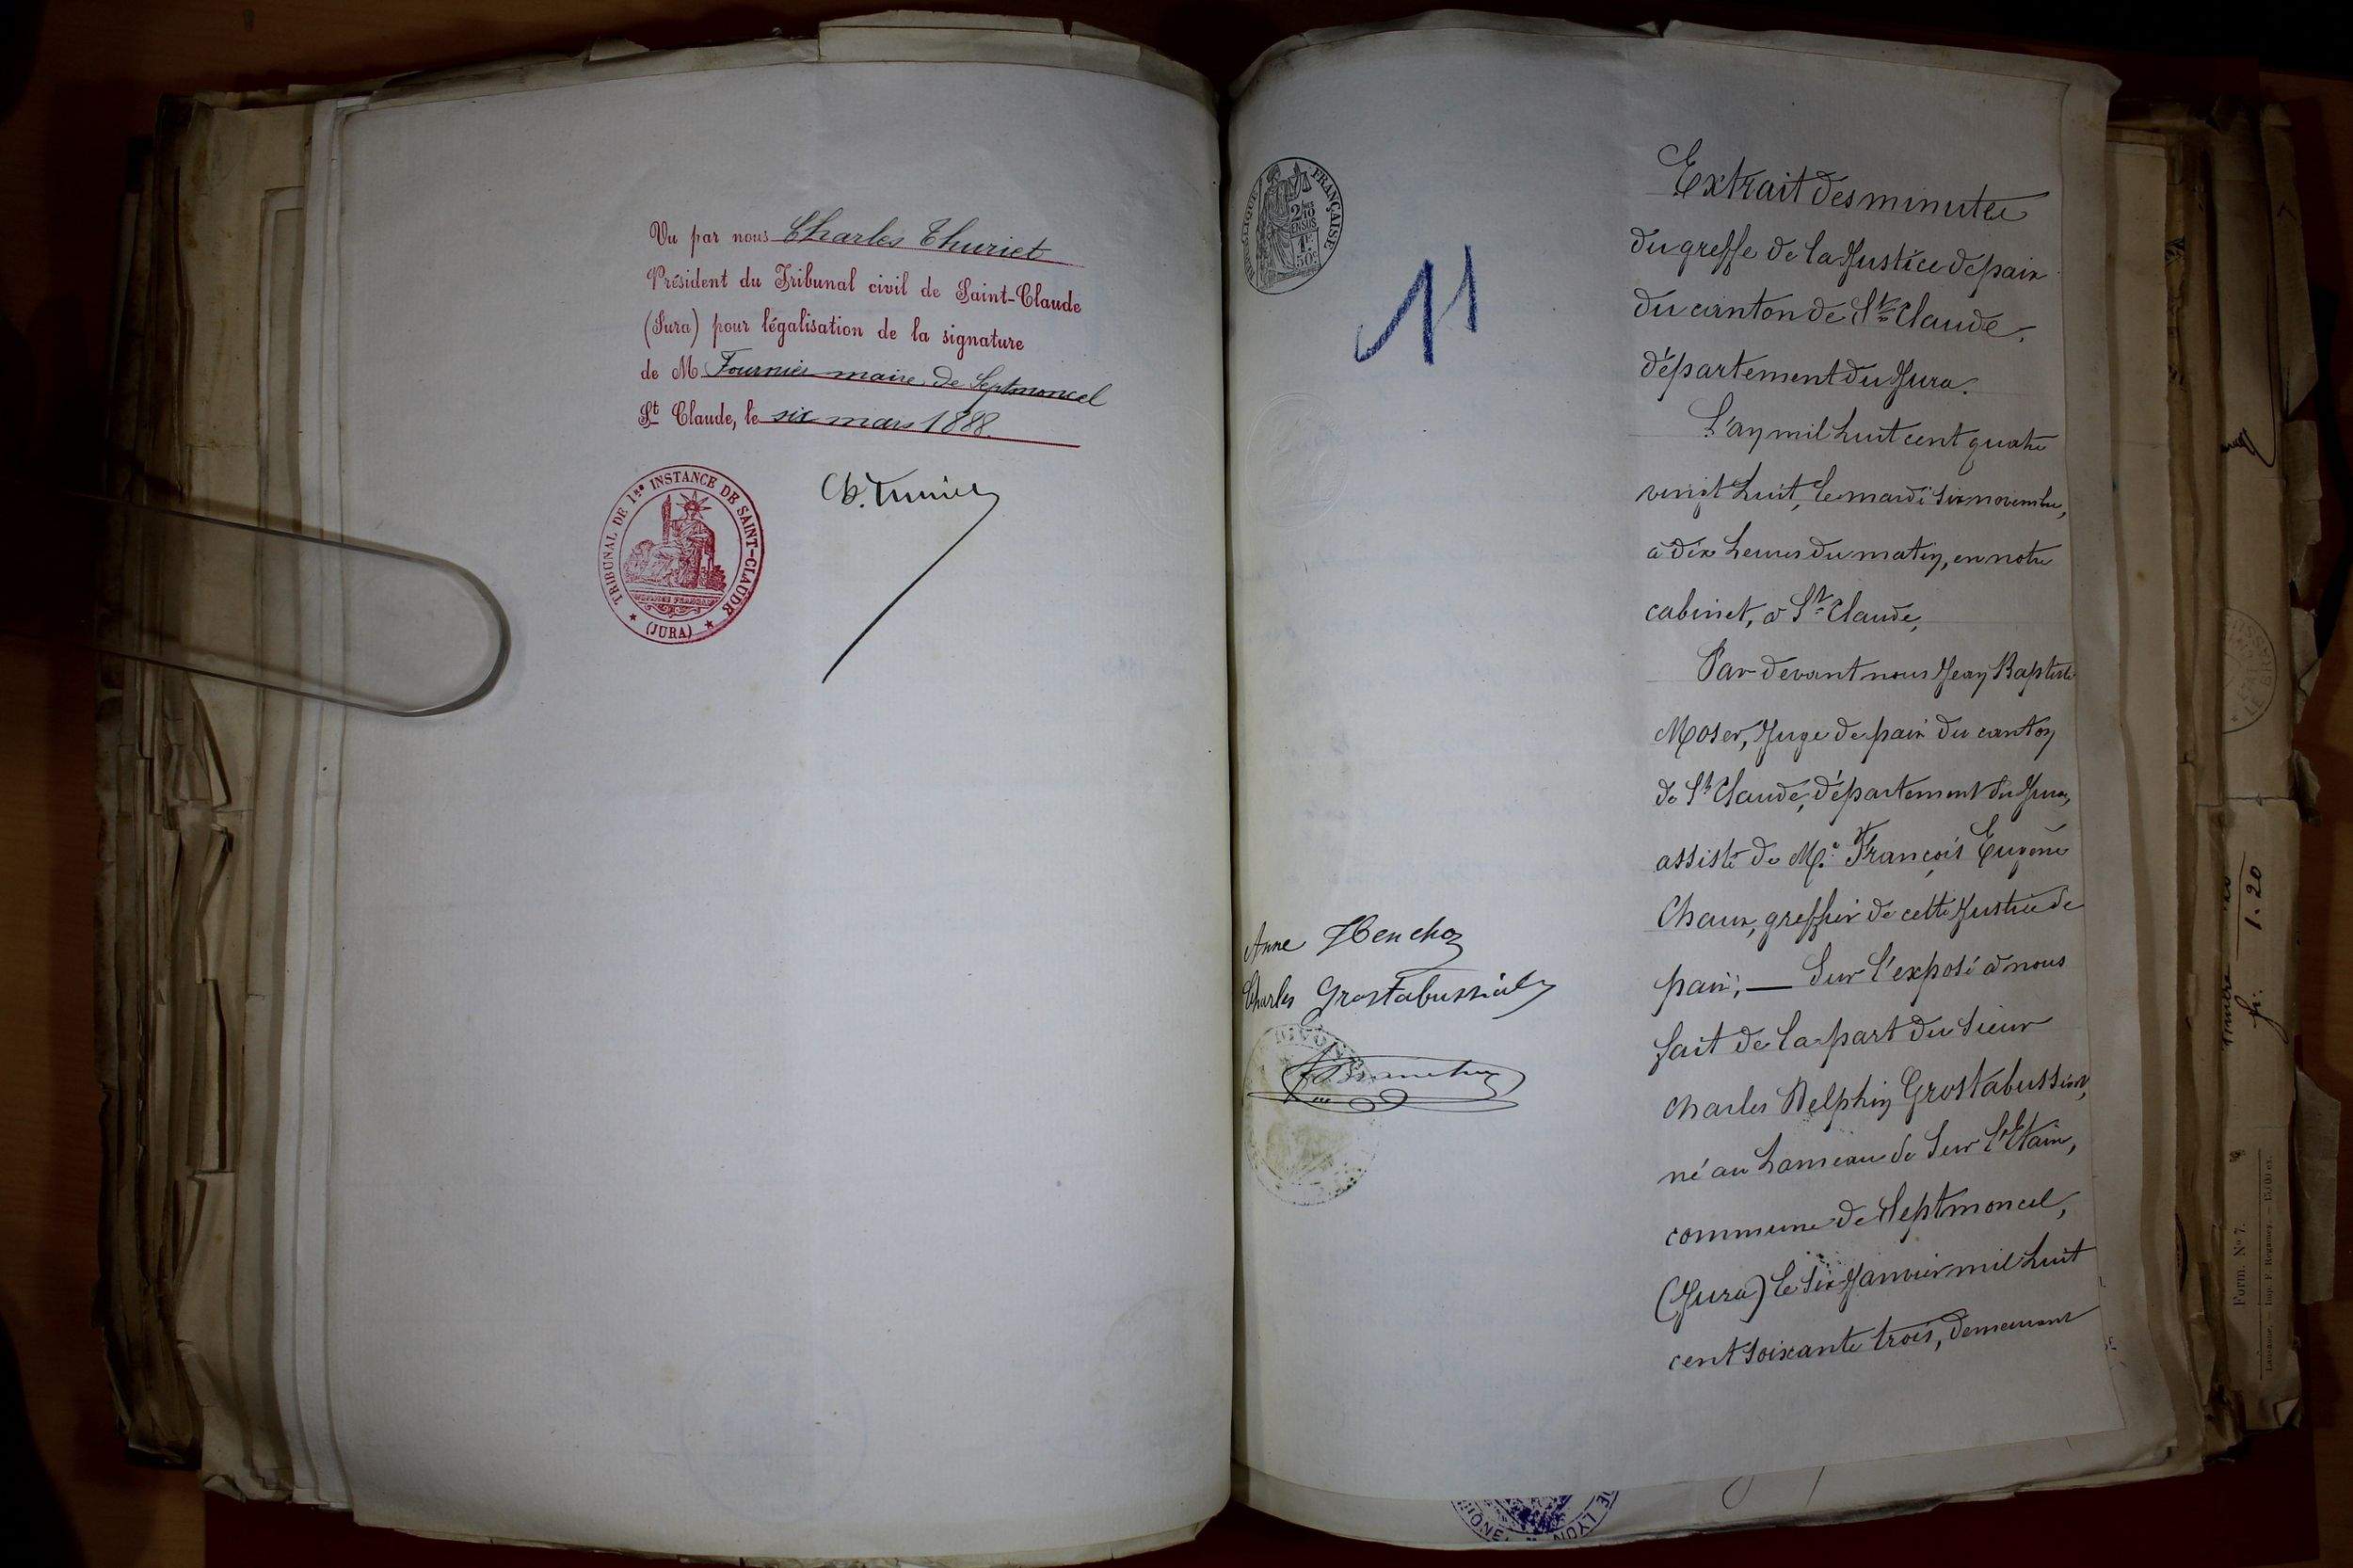 Vu par nous Charles Thuriet
Président du Tribunal civil de Saint-Claude
(Jura) pour légalisation de la signature
de M Fournier maire de Septmoncel
St Claude, le six mars 1888.
Ch. Thuriet
TRIBUNAL DE 1re INSTANCE DE SAINT-CLAUDE
(JURA)
FRANÇAISE
2/10
EN SUS
1F
50c
11
Extrait des minutes
du greffe de la Justice de paix
du canton de St Claude,
département du Jura.
L'an mil huit cent quatre
vingt huit, le mardi six novembre,
à dix heures du matin, en notre
cabinet, à St Claude,
Par devant nous Jean Baptiste
Moser, Juge de paix du canton
de St Claude, département du Jura,
assisté de Me François Eugène
Chaux, greffier de cette Justice de
paix; — Sur l'exposé à nous
fait de la part du sieur
Charles Delphin Grostabussiat,
né au hameau de Sur l'Etain,
commune de Septmoncel,
(Jura) le six Janvier mil huit
cent soixante trois, demeurant
Anne Henchoz
Charles Grostabussiat
RHÔNE
LYON
fr. 1.20
Form. No 7.